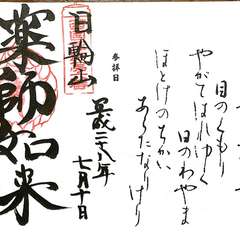 目のくもり
やがてはれゆく
日のわやま
ほとけのちかい
あらたなりけり
参拝日
平成二十八年
七月十日
日輪山
薬師如来